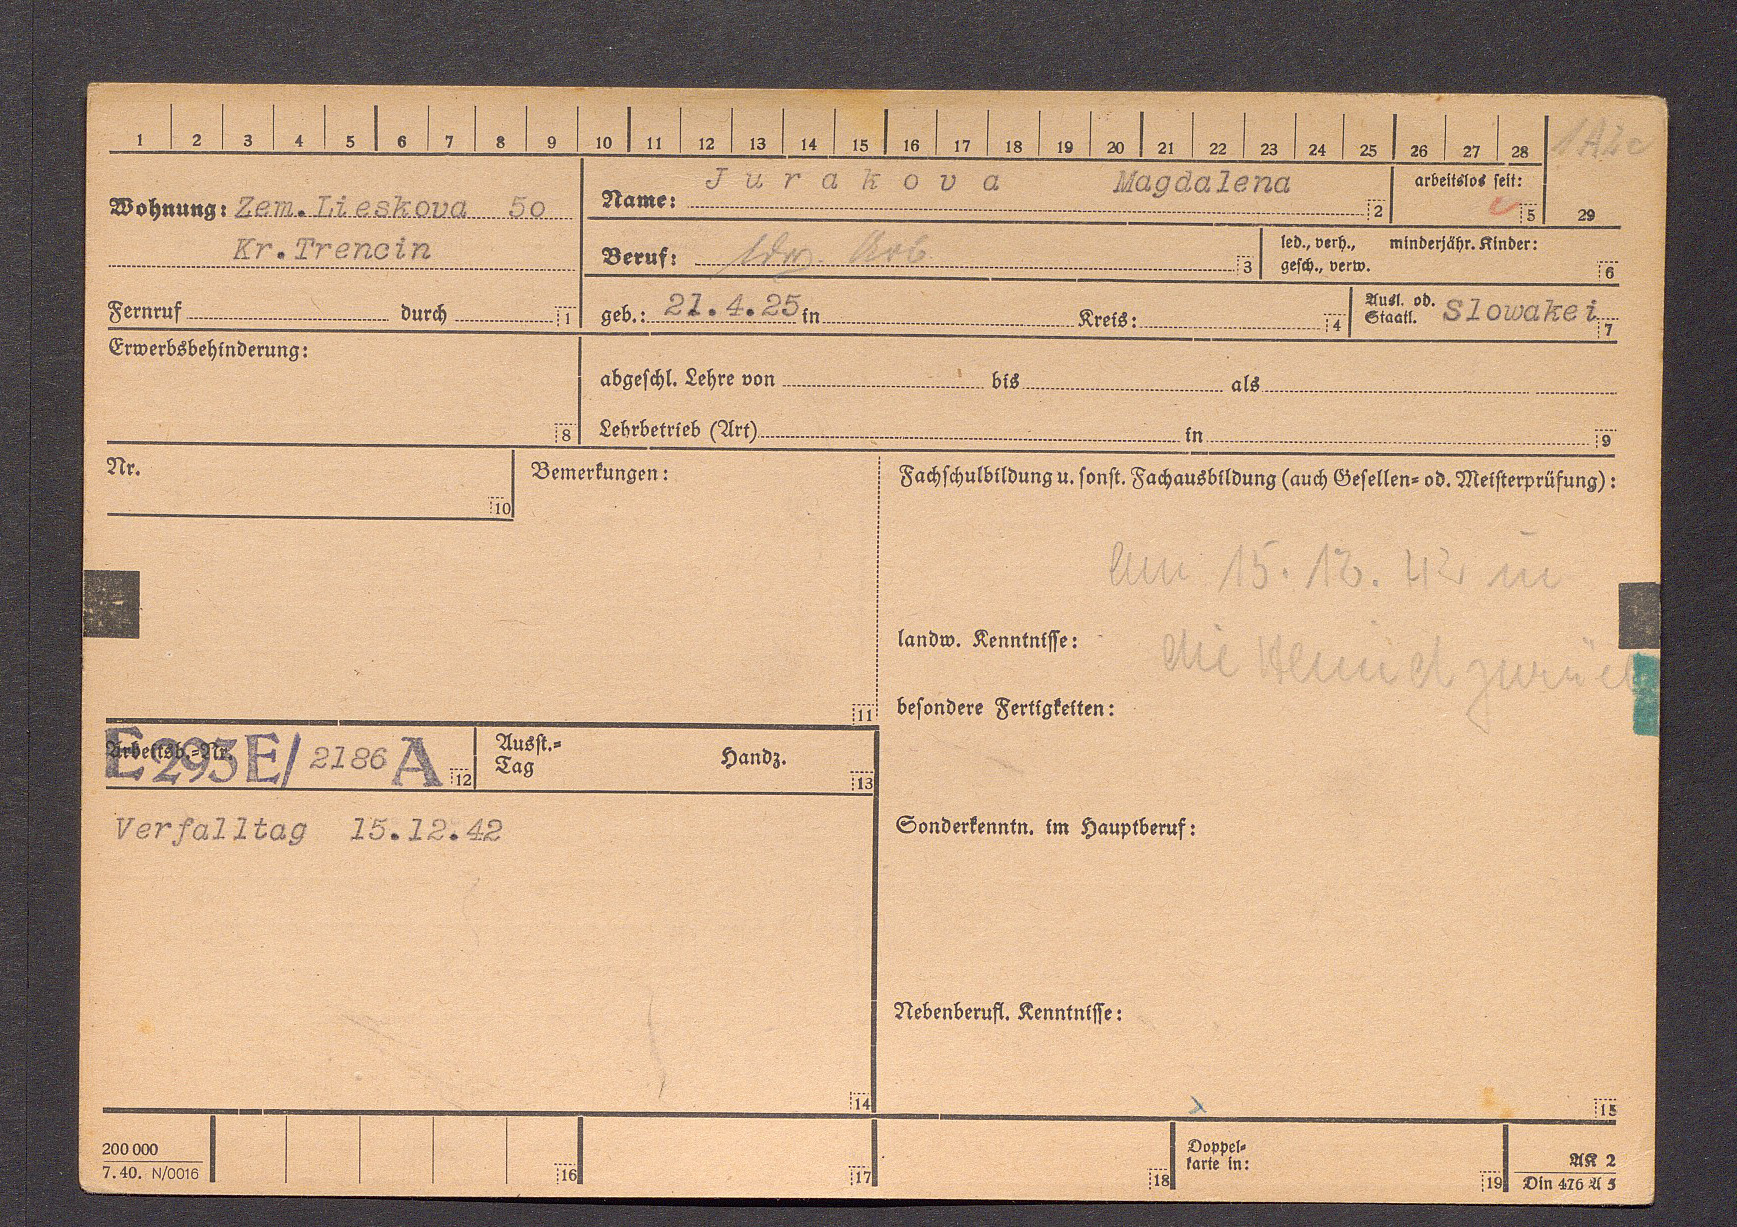 1 2 3 4 5 6 7 8 9 10 11 12 13 14 15 16 17 18 19 20 21 22 23 24 25 26 27 28 29
1A2c
Wohnung: Zem. Lieskova 50
Kr. Trencin
Fernruf durch 1
Name: Jurakova Magdalena 2
arbeitslos seit: 5
Beruf: ldw. Arb 3
led., verh., minderjähr. Kinder:
gesch., verw. 6
geb.: 21.4.25 in Kreis: 4
Ausl. od.
Staatl. Slowakei 7
Erwerbsbehinderung:
8
abgeschl. Lehre von bis als
Lehrbetrieb (Art) in 9
Nr.
10
Bemerkungen:
11
Fachschulbildung u. sonst. Fachausbildung (auch Gesellen- od. Meisterprüfung):
Am 15.12.42 in
landw. Kenntnisse:
die Heimat zurück
besondere Fertigkeiten:
Arbeitsb.-Nr.
E293E/ 2186 A 12
Ausst.-
Tag Handz.
13
Verfalltag 15.12.42
14
Sonderkenntn. im Hauptberuf:
Nebenberufl. Kenntnisse:
15
200 000
7. 40. N/0016
16
17
18
Doppel-
karte in:
19
AK 2
Din 476 A 5